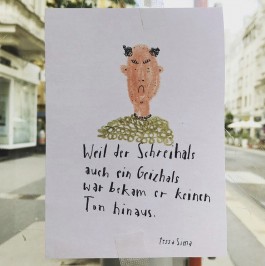 Weil der Schreihals
auch ein Geizhals
war bekam er keinen
Ton hinaus.